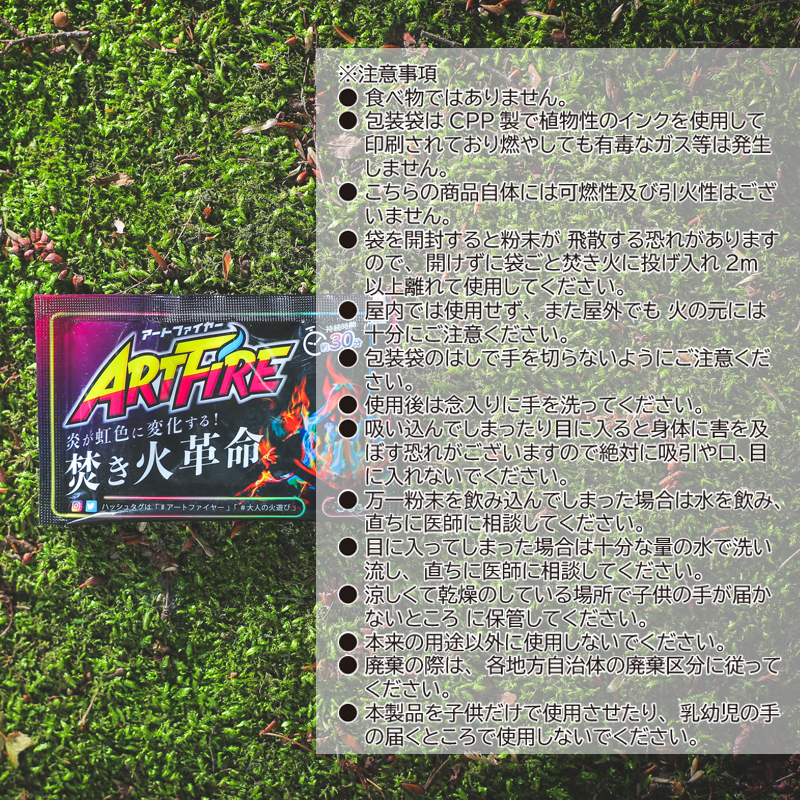 ※注意事項
● 食べ物ではありません。
● 包装袋は CPP 製で植物性のインクを使用して
印刷されており燃やしても有毒なガス等は発生
しません。
● こちらの商品自体には可燃性及び引火性はござ
いません。
● 袋を開封すると粉末が 飛散する恐れがあります
ので、開けずに袋ごと焚き火に投げ入れ 2m
以上離れて使用してください。
● 屋内では使用せず、また屋外でも 火の元には
十分にご注意ください。
● 包装袋のはしで手を切らないようにご注意くだ
さい。
● 使用後は念入りに手を洗ってください。
● 吸い込んでしまったり目に入ると身体に害を及
ぼす恐れがございますので絶対に吸引や口、目
に入れないでください。
● 万一粉末を飲み込んでしまった場合は水を飲み、
直ちに医師に相談してください。
● 目に入ってしまった場合は十分な量の水で洗い
流し、直ちに医師に相談してください。
● 涼しくて乾燥のしている場所で子供の手が届か
ないところ に保管してください。
● 本来の用途以外に使用しないでください。
● 廃棄の際は、各地方自治体の廃棄区分に従って
ください。
● 本製品を子供だけで使用させたり、乳幼児の手
の届くところで使用しないでください。
アートファイヤー
ARTFIRE
持続時間
約30分
炎が虹色に変化する!
焚き火革命
ハッシュタグは「#アートファイヤー」「#大人の火遊び」